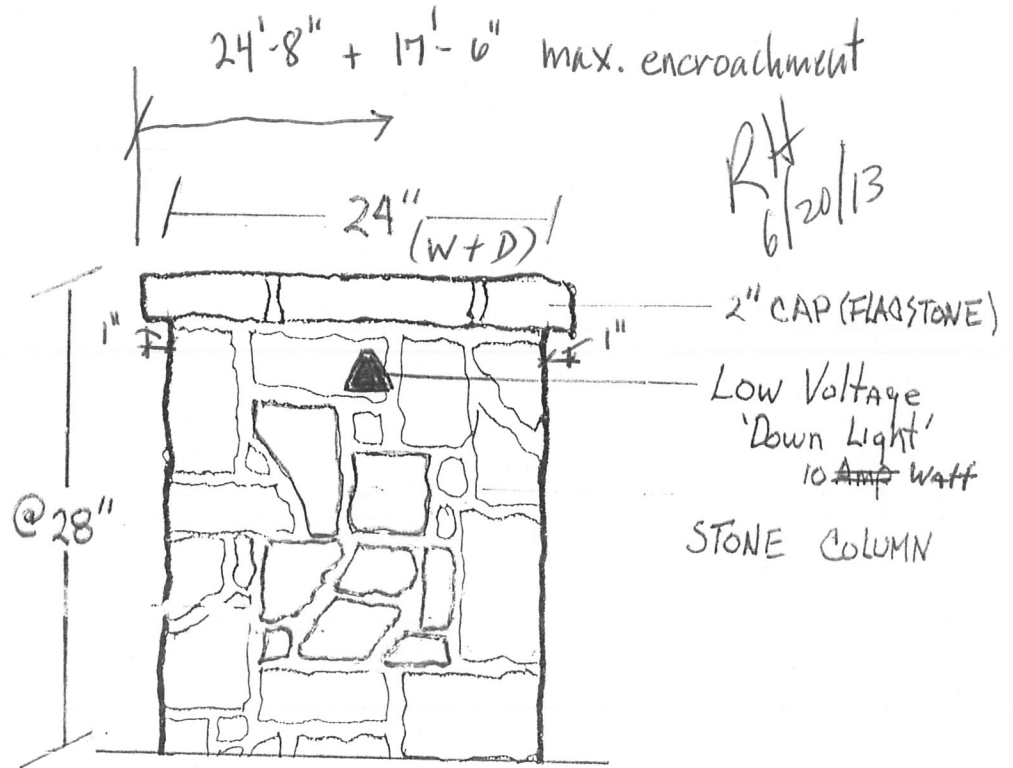 24'-8" + 17'-6" max. encroachment
RH
6/20/13
24"
(W + D)
2" CAP (FLAGSTONE)
1"
1"
LOW VOLTAGE
'DOWN LIGHT'
10 Amp WATT
@ 28"
STONE COLUMN